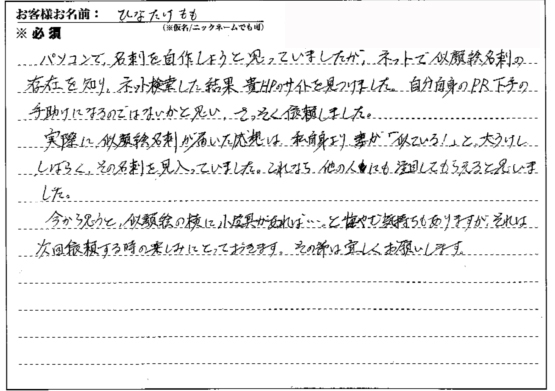 お客様お名前： ひなたけもも
※必須 (※仮名/ニックネームでも可)
パソコンで、名刺を自作しようと思っていましたが、ネットで似顔絵名刺の
存在を知り、ネット検索した結果、貴HPのサイトを見つけました。自分自身のPR下手の
手助けになるのではないかと思い、さっそく依頼しました。
実際に似顔絵名刺が届いた感想は、私自身より妻が「似ている！」と、大うけし
しばらく、その名刺を見入っていました。これなら、他の人にも注目してもらえると思いま
した。
今から思うと、似顔絵の横に小道具があれば…、と悔やむ気持ちもありますが、それは
次回依頼する時の楽しみにとっておきます。その節は宜しくお願いします。